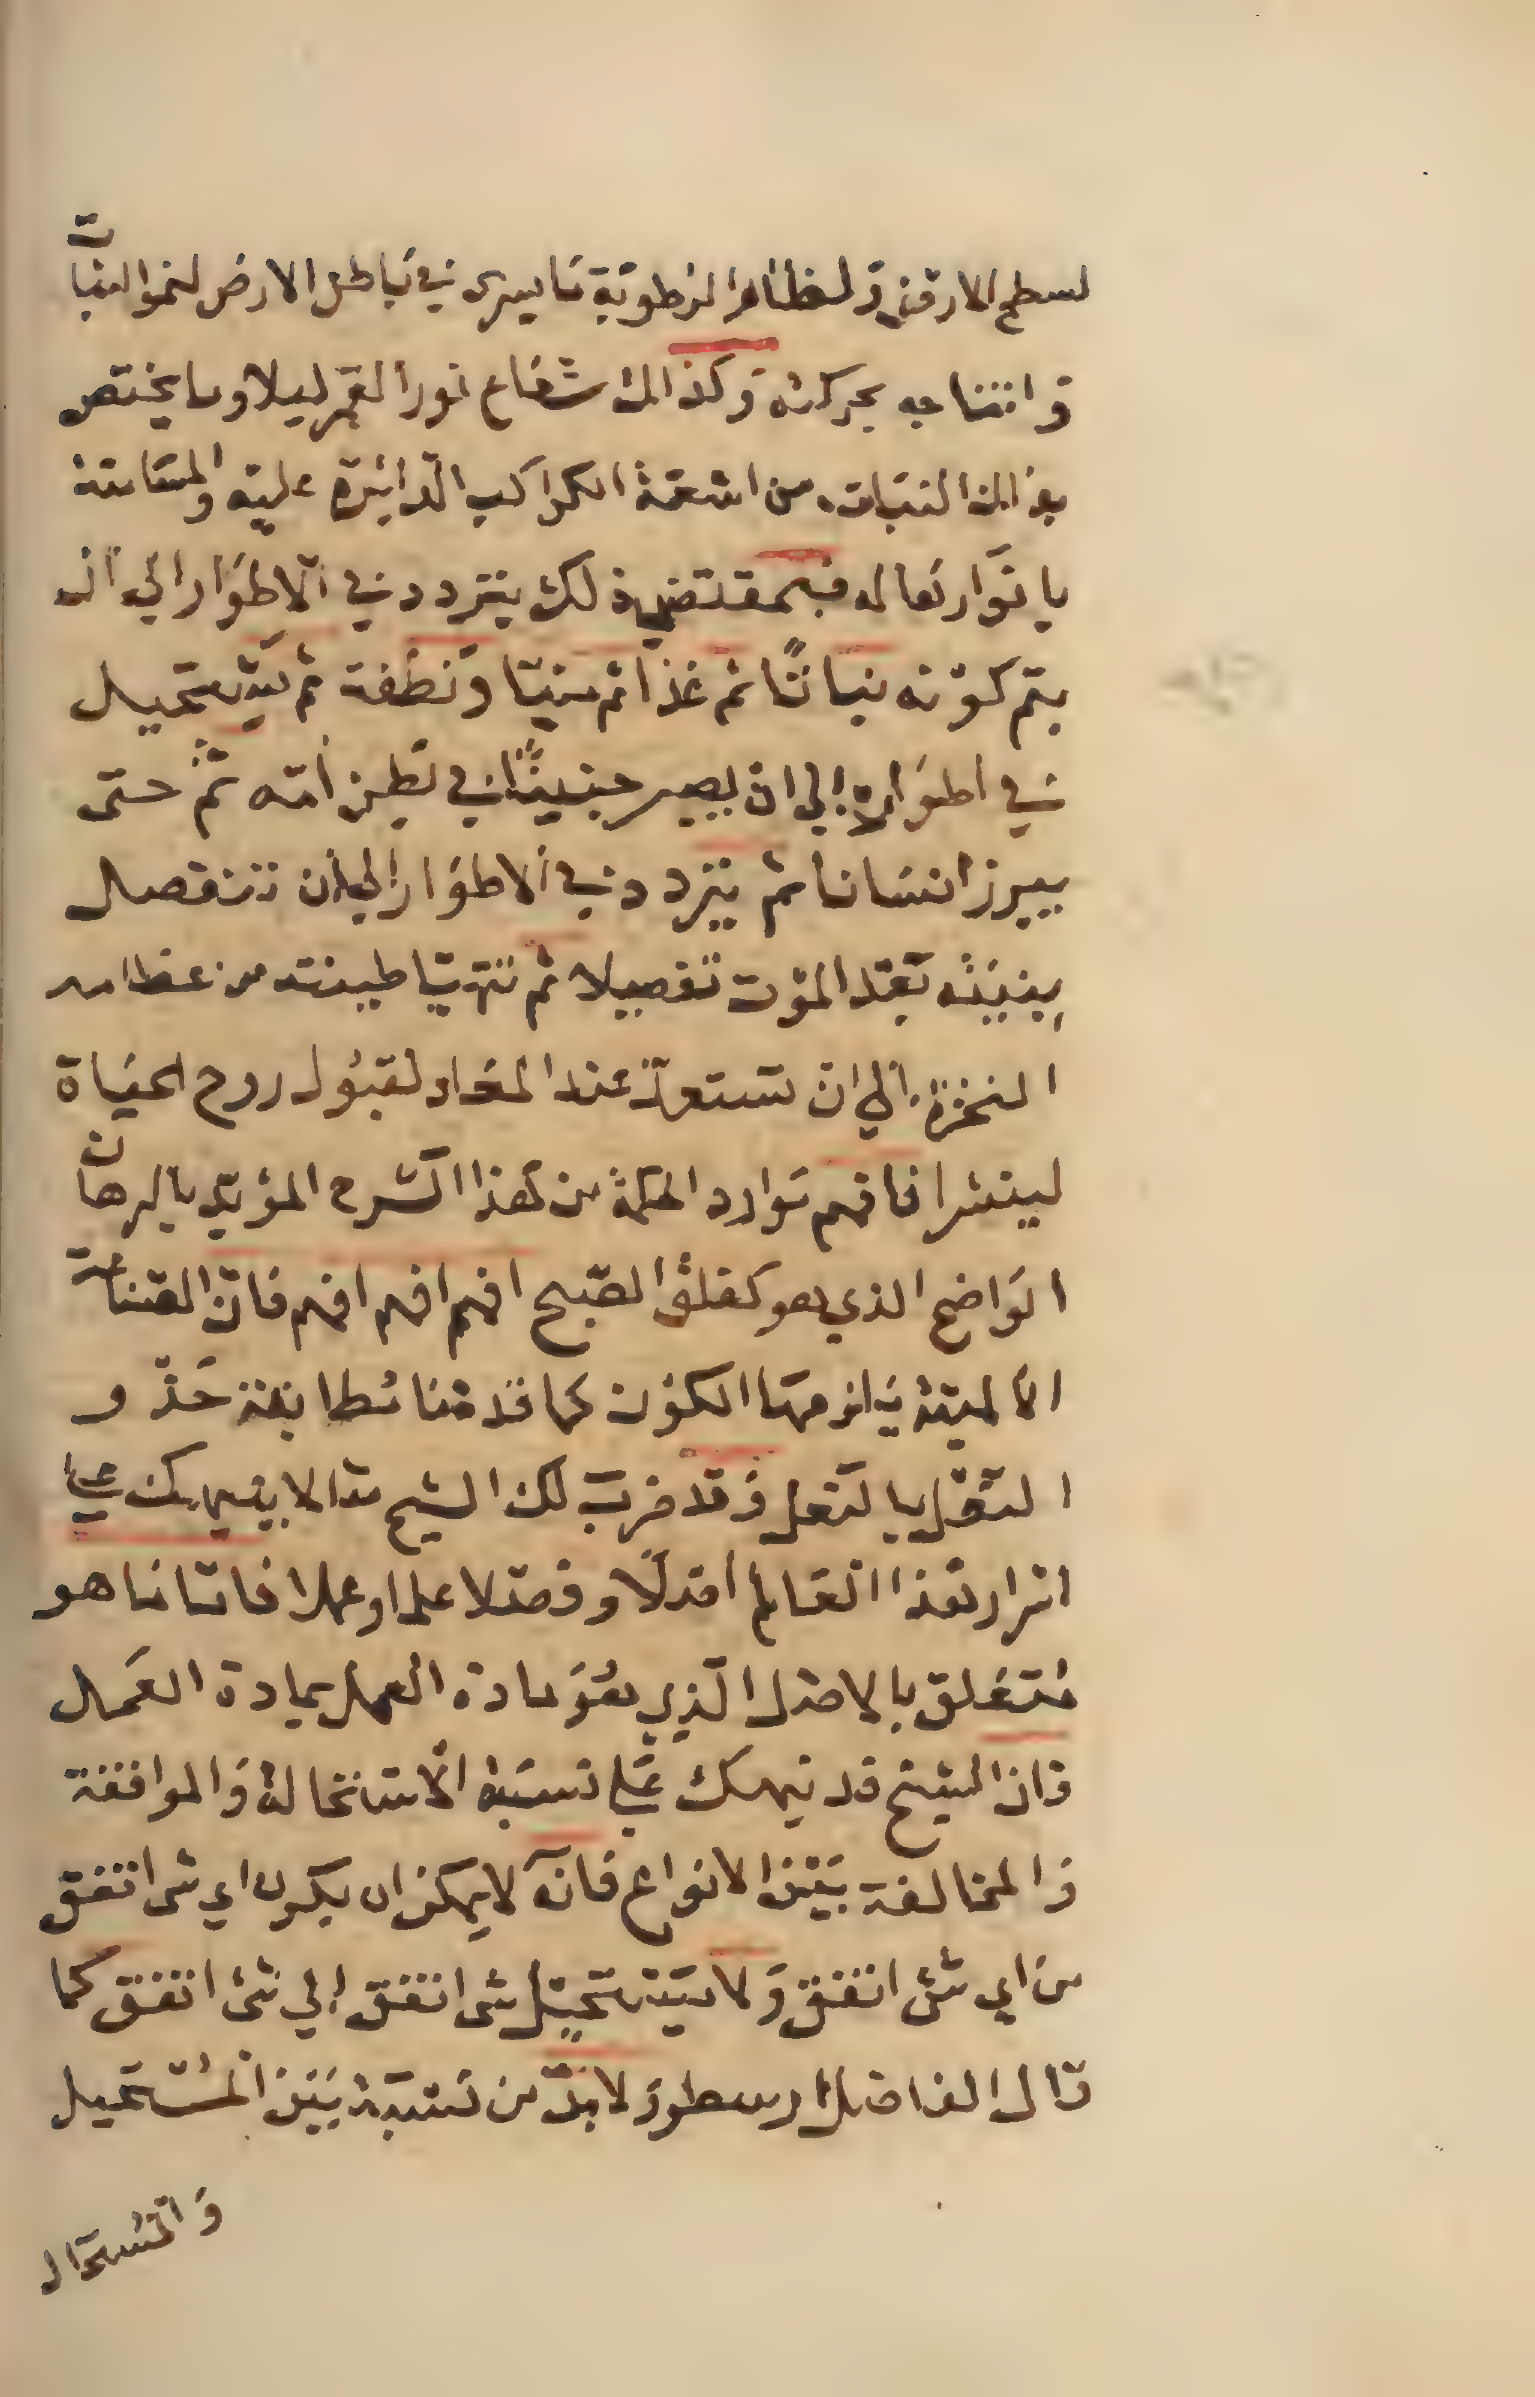 لسطح الارض ولظاهر الرطوبة ما يسرى في باطن الارض لنمو النبات
وانضاجه بحركته وكذالك شعاع نور القمر ليلا وما يختص
بذالك النبات من اشعة الكواكب الدائرة عليه والمسامتة
بانوارها له فبمقتضي ذلك يتردد في الاطوار الي ان
يتم كونه نباتًا ثم غذا ثم منيّا ونطفة ثم يستحيل
في اطواره الي ان يصير جنينًا في بطن أمه ثم حتى
يبرز انسانا ثم يتردد في الاطوار الي ان تنفصل
بنيته بعد الموت تفصيلا ثم تتهيّا طينته من عظامه
النخرة الي ان تستعدّ عند المعاد لقبول روح الحياة
لينشرا فافهم موارد الحكمة من هذا الشرح المؤيد بالبرهان
الواضح الذي هو كفلق الصّبح افهم افهم افهم فانّ الصناعة
الالهية يلزمها الكون كما قدمنا مطابقة حذو
النعل بالنعل وقد ضرب لك الشيخ مثالا ينبهك على
اسرار هذا العالم اصلًا وفصلا علما وعملا فاما ما هو
متعلق بالاصل الذي هو مادة العمل بمادة العمل
فان الشيخ قد نبهك على نسبة الاستحالة والموافقة
والمخالفة بين الانواع فانه لا يمكن ان يكون اي شى اتفق
من اي شئ اتفق ولا يستحيل شى اتفق الي شئ اتفق كما
قال الفاضل ارسطو ولا بدّ من نسبة بين المستحيل
والمستحال